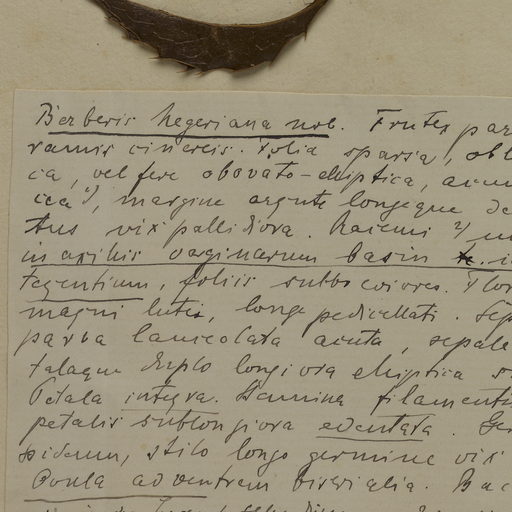 Berberis hegeriana nob. Frutex par
ramis cinereis. Folia sparsa, obl
ca, vel fere obovato-elliptica, acum
margine argute longeque de
tus vix pallidiora. Racemi 2) 
in axillis vaginarum basin
tegentium, foliis subbreviores. Flor
magni lutei, longe pedicellati. Sep
parva lanceolata acuta, sepala
talaque duplo longiora elliptica s
Petala integra. Stamina filamenti
petalis sublongiora edentata. Ger
stilo longo germine vix
Ovula ad ventrem biserialia. Bac